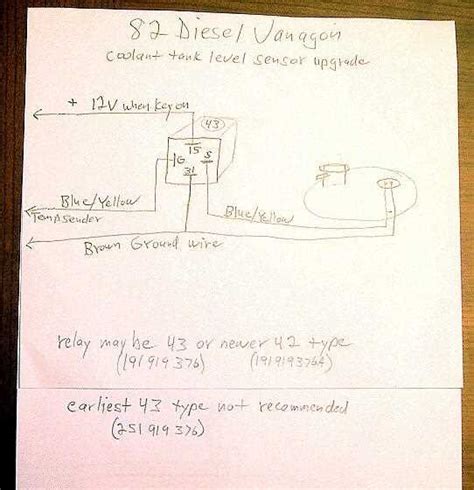 82 Diesel Vanagon
coolant tank level sensor upgrade
+ 12V when key on
43
15
G S
31
Blue/Yellow
Temp sender
Blue/Yellow
Brown Ground wire
relay may be 43 or newer 42 type
(191 919 376) (191919376A)
earliest 43 type not recommended
(251 919 376)